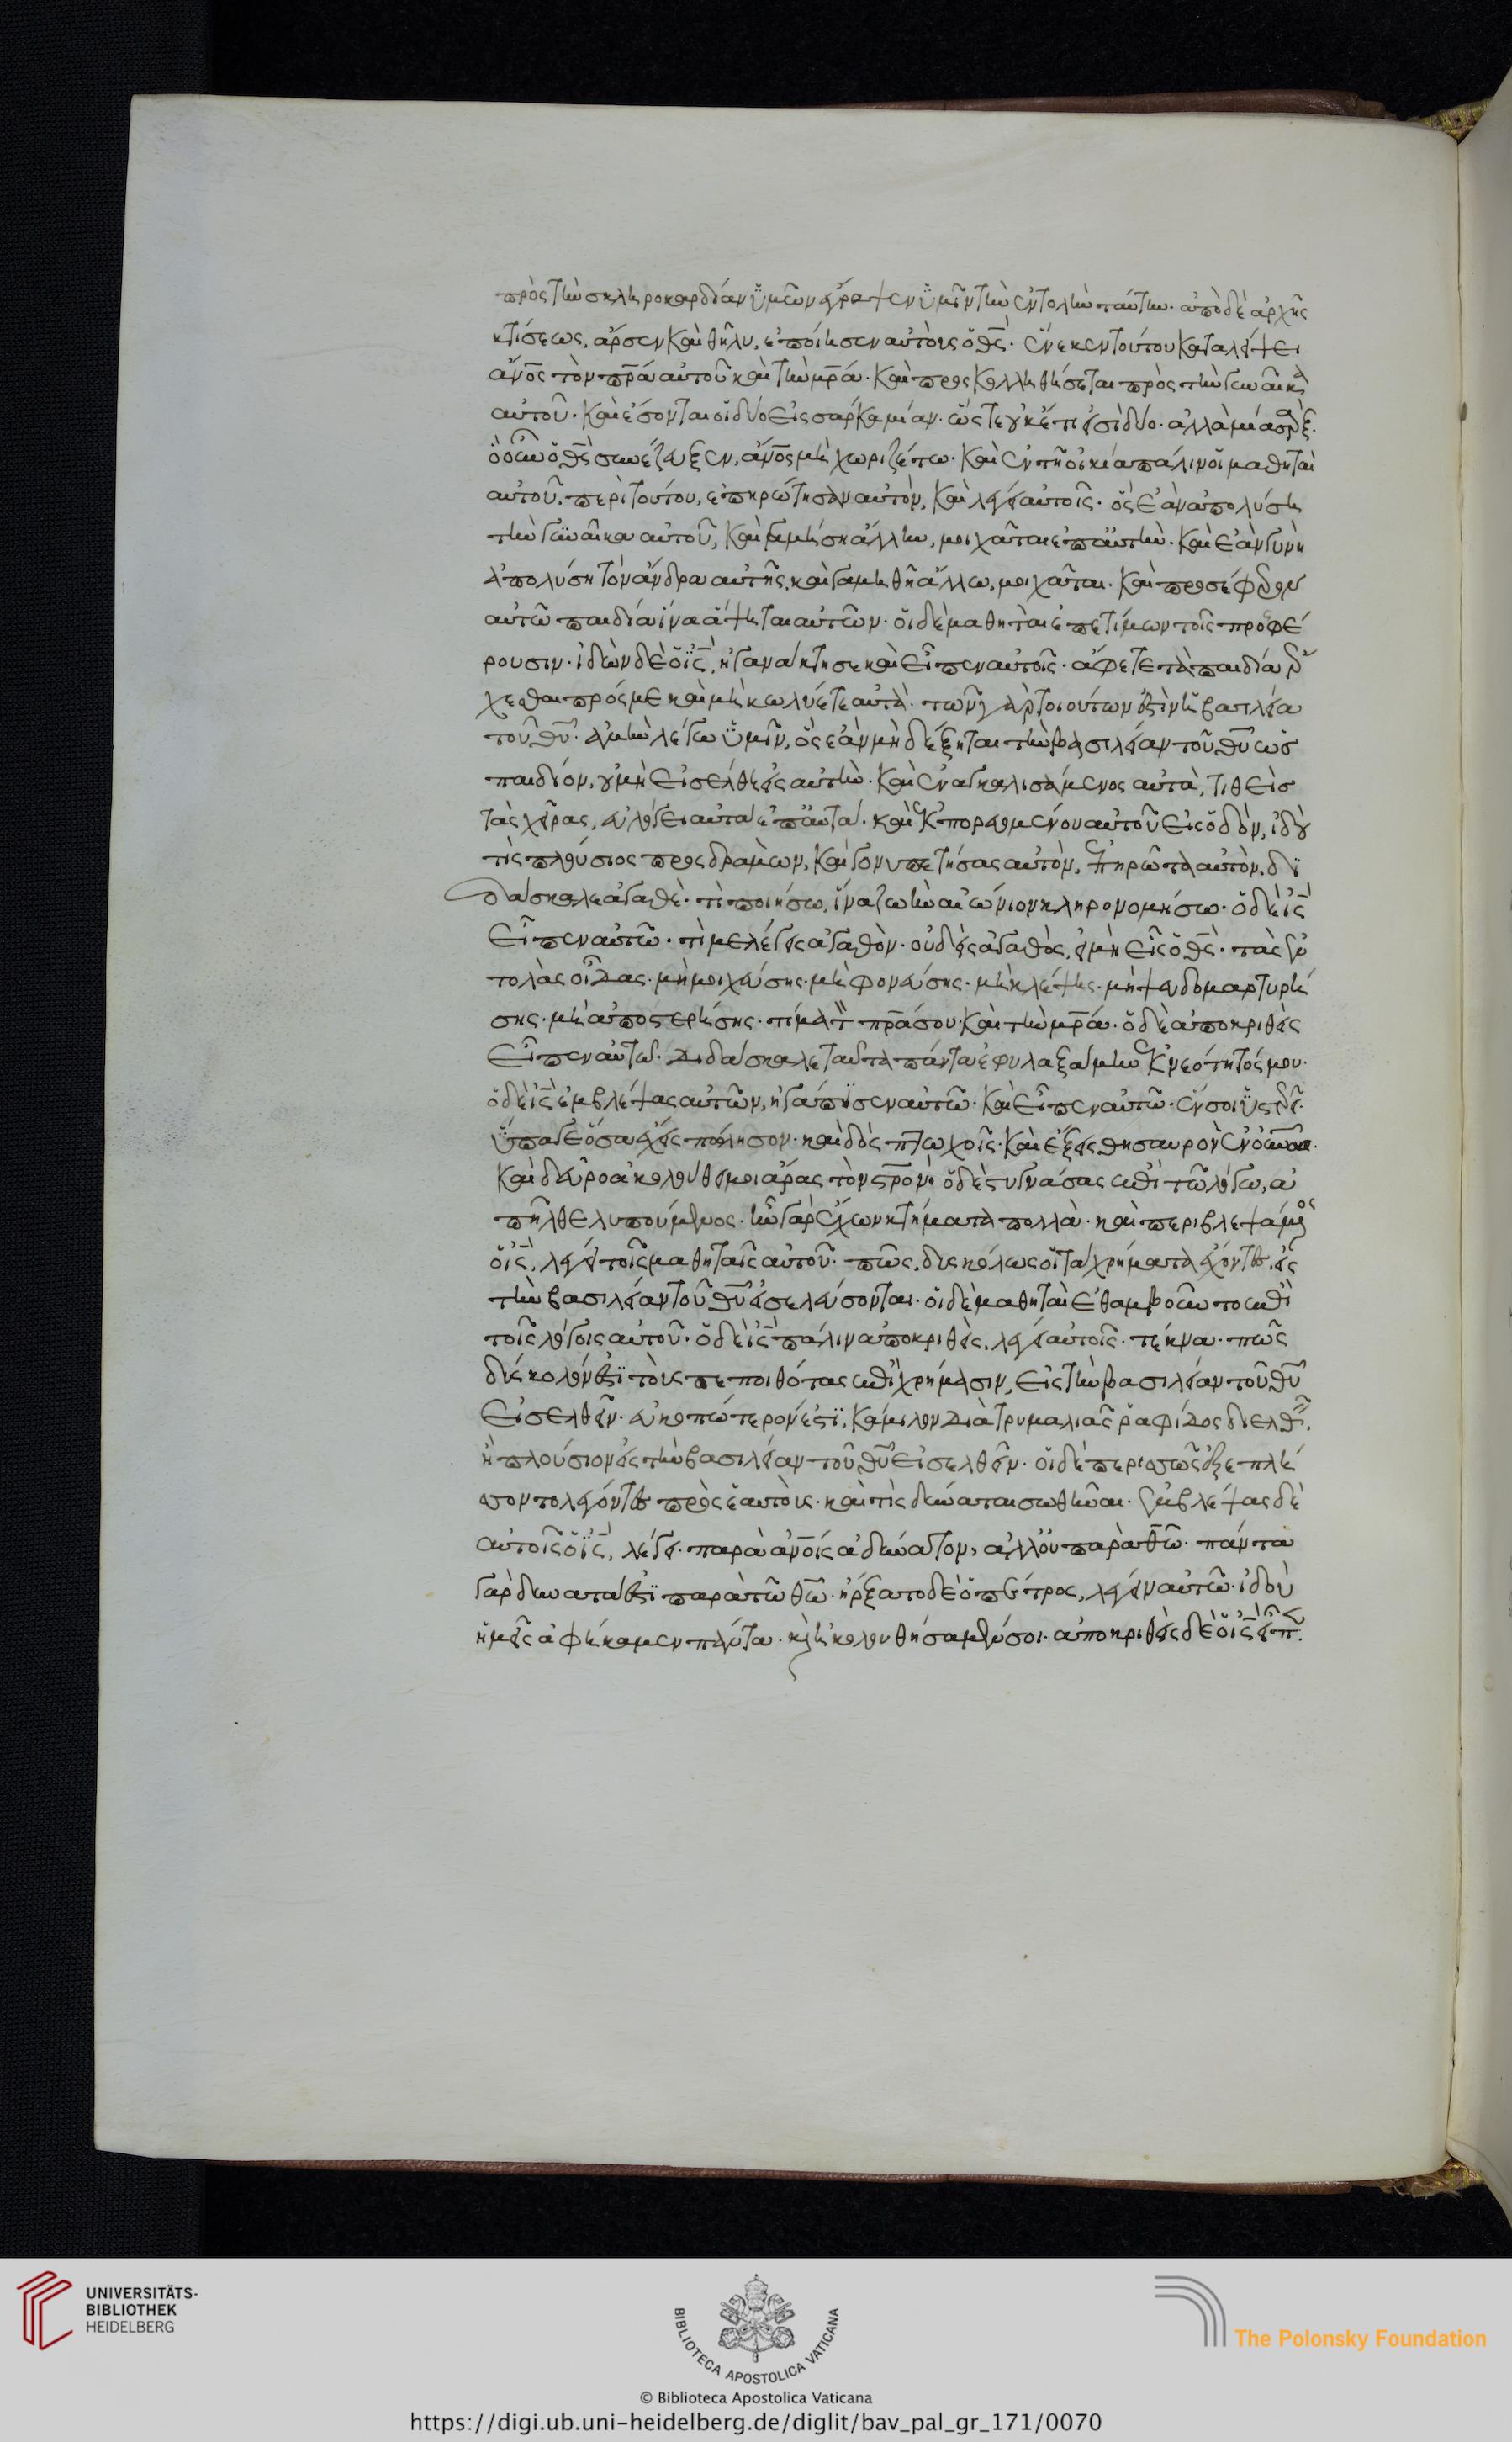 πρὸς τὴν σκληροκαρδίαν ὑμῶν ἔγραψεν ὑμῖν τὴν ἐντολὴν ταύτην· ἀπὸ δὲ ἀρχῆς
κτίσεως, ἄρσεν καὶ θῆλυ, ἐποίησεν αὐτοὺς ὁ θς̅· ἕνεκεν τούτου καταλείψει
ἄνο̅ς τὸν πρ̅α αὐτοῦ καὶ τὴν μρ̅α· καὶ προσκολληθήσεται πρὸς τὴν γυναῖκα
αὐτοῦ· καὶ ἔσονται οἱ δύο εἰς σάρκα μίαν· ὥστε οὐκέτι εἰσὶ δύο· ἀλλὰ μία σὰρξ·
ὃ οὖν ὁ θς̅ συνέζευξεν, ἄνο̅ς μὴ χωριζέτω· καὶ ἐν τῇ οἰκία πάλιν οἱ μαθηταὶ
αὐτοῦ, περὶ τούτου, ἐπηρώτησαν αὐτὸν, καὶ λέγει αὐτοῖς· ὃς ἐὰν ἀπολύση
τὴν γυναῖκα αὐτοῦ, καὶ γαμήση ἄλλην, μοιχᾶται ἐπ' αὐτὴν· καὶ ἐὰν γυνὴ
ἀπολύση τὸν ἄνδρα αὐτῆς, καὶ γαμηθῆ ἄλλω, μοιχᾶται· καὶ προσέφερον
αὐτῶ παιδία ἵνα ἅψηται αὐτῶν· οἱ δὲ μαθηταὶ ἐπετίμων τοῖς προσφέ
ρουσιν· ἰδὼν δὲ ὁ ις̅, ἠγανάκτησε καὶ εἶπεν αὐτοῖς· ἄφετε τὰ παιδία ἔρ
χεσθαι πρός με καὶ μὴ κωλύετε αὐτὰ· τῶν γὰρ τοιούτων ἐστὶν ἡ βασιλεία
τοῦ θυ̅· ἀμὴν λέγω ὑμῖν, ὃς ἐὰν μὴ δέξηται τὴν βασιλείαν τοῦ θυ̅ ὡς
παιδίον, οὐ μὴ εἰσέλθη εἰς αὐτὴν· καὶ ἐναγκαλισάμενος αὐτὰ, τιθεὶς
τὰς χεῖρας, εὐλόγει αὐτὰ ἐπ' αὐτὰ· καὶ ἐκπορευομένου αὐτοῦ εἰς ὁδὸν, ἰδοὺ
τὶς πλούσιος προσδραμὼν, καὶ γονυπετήσας αὐτὸν, ἐπηρώτα αὐτὸν. δι
δάσκαλε ἀγαθὲ· τί ποιήσω, ἵνα ζωὴν αἰώνιον κληρονομήσω· ὁ δὲ ις̅
εἶπεν αὐτῶ· τί με λέγεις ἀγαθὸν· οὐδεὶς ἀγαθὸς, εἰ μὴ εἷς ὁ θς̅· τὰς ἐν
τολὰς οἶδας· μὴ μοιχεύσης· μὴ φονεύσης· μὴ κλέψης· μὴ ψευδομαρτυρή
σης· μὴ ἀποστερήσης· τίμα τὸν πρ̅α σου· καὶ τὴν μρ̅α· ὁ δὲ ἀποκριθεὶς
εἶπεν αὐτῶ· διδάσκαλε ταῦτα πάντα ἐφυλαξάμην ἐκ νεότητός μου·
ὁ δὲ ις̅ ἐμβλέψας αὐτῶν, ἠγάπησεν αὐτῶ· καὶ εἶπεν αὐτῶ· ἕν σοι ὑστερεῖ·
ὕπαγε ὅσα ἔχεις πώλησον· καὶ δὸς πτωχοῖς· καὶ ἕξεις θησαυρὸν ἐν οὐνω̅·
καὶ δεῦρο ἀκολούθει μοι ἄρας τὸν στρο̅ν· ὁ δὲ στυγνάσας ἐπὶ τῶ λόγω, ἀ
πῆλθε λυπούμενος· ἦν γὰρ ἔχων κτήματα πολλὰ· καὶ περιβλεψάμενος
ὁ ις̅, λέγει τοῖς μαθηταῖς αὐτοῦ· πῶς δυσκόλως οἱ τὰ χρήματα ἔχοντες, εἰς
τὴν βασιλείαν τοῦ θυ̅ εἰσελεύσονται· οἱ δὲ μαθηταὶ ἐθαμβοῦντο ἐπὶ
τοῖς λόγοις αὐτοῦ· ὁ δὲ ις̅ πάλιν ἀποκριθεὶς, λέγει αὐτοῖς· τέκνα· πῶς
δύσκολόν ἐστι τοὺς πεποιθότας ἐπὶ χρήμασιν, εἰς τὴν βασιλείαν τοῦ θυ̅
εἰσελθεῖν· εὐκοπώτερόν ἐστι, κάμιλον διὰ τρυμαλιᾶς ῥαφίδος διελθεῖν,
ἢ πλούσιον εἰς τὴν βασιλείαν τοῦ θυ̅ εἰσελθεῖν· οἱ δὲ περισσῶς ἐξεπλή
σσοντο λέγοντες πρὸς ἑαυτοὺς· καὶ τίς δύναται σωθῆναι· ἐμβλέψας δὲ
αὐτοῖς ὁ ις̅, λέγει· παρὰ ἀνο̅ις ἀδύνατον, ἀλλ' οὐ παρὰ θω̅· πάντα
γὰρ δυνατά ἐστι παρὰ τῶ θω̅· ἤρξατο δὲ ὁ πέτρος, λέγειν αὐτῶ· ἰδοὺ
ἡμεῖς ἀφήκαμεν πάντα· καὶ ἠκολουθήσαμέν σοι· ἀποκριθεὶς δὲ ὁ ις̅ εἶπεν·
UNIVERSITÄTS-
BIBLIOTHEK
HEIDELBERG
BIBLIOTECA APOSTOLICA VATICANA
The Polonsky Foundation
© Biblioteca Apostolica Vaticana
https://digi.ub.uni-heidelberg.de/diglit/bav_pal_gr_171/0070